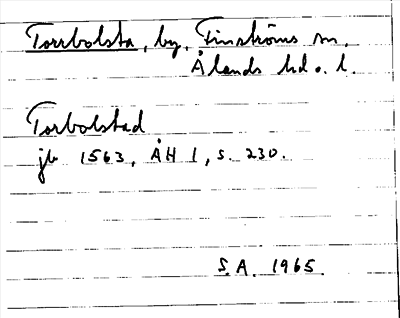 Torrbolsta, by, Finströms sn,
Ålands hd o. l.
Torbolstad
jb 1563, ÅH 1, s. 230.
S.A. 1965.